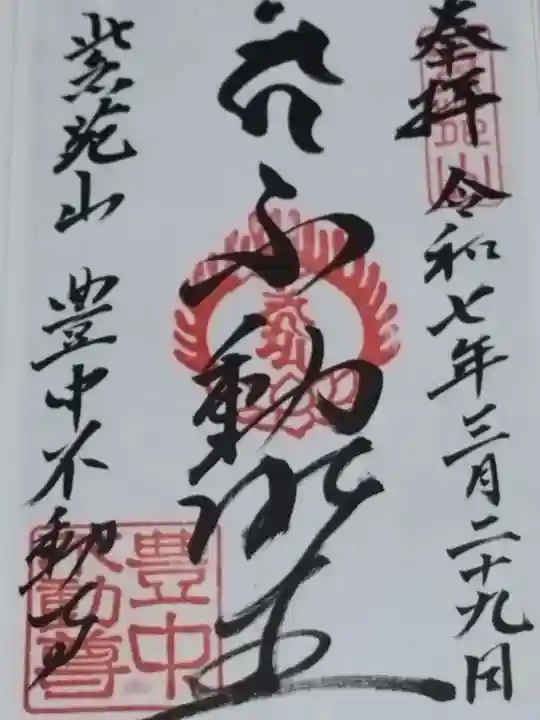 奉拝
令和七年三月二十九日
不動明王
紫苑山 豊中不動尊
豊中
不動尊